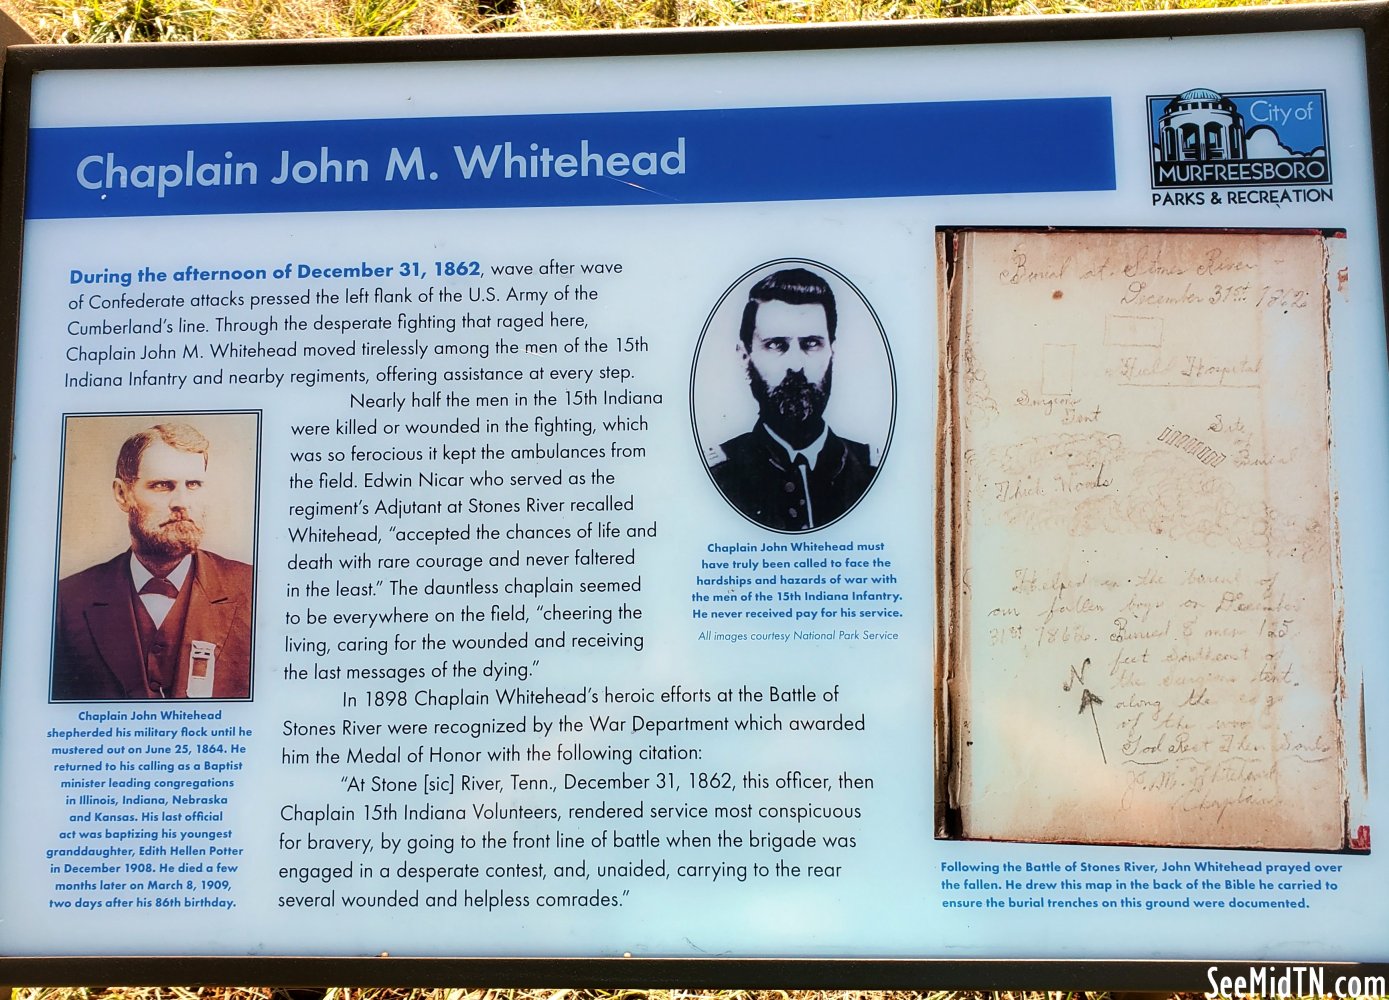 Chaplain John M. Whitehead
City of
MURFREESBORO
PARKS & RECREATION
During the afternoon of December 31, 1862, wave after wave
of Confederate attacks pressed the left flank of the U.S. Army of the
Cumberland's line. Through the desperate fighting that raged here,
Chaplain John M. Whitehead moved tirelessly among the men of the 15th
Indiana Infantry and nearby regiments, offering assistance at every step.
Nearly half the men in the 15th Indiana
were killed or wounded in the fighting, which
was so ferocious it kept the ambulances from
the field. Edwin Nicar who served as the
regiment's Adjutant at Stones River recalled
Whitehead, "accepted the chances of life and
death with rare courage and never faltered
in the least." The dauntless chaplain seemed
to be everywhere on the field, "cheering the
living, caring for the wounded and receiving
the last messages of the dying."
In 1898 Chaplain Whitehead's heroic efforts at the Battle of
Stones River were recognized by the War Department which awarded
him the Medal of Honor with the following citation:
"At Stone [sic] River, Tenn., December 31, 1862, this officer, then
Chaplain 15th Indiana Volunteers, rendered service most conspicuous
for bravery, by going to the front line of battle when the brigade was
engaged in a desperate contest, and, unaided, carrying to the rear
several wounded and helpless comrades."
Chaplain John Whitehead
shepherded his military flock until he
mustered out on June 25, 1864. He
returned to his calling as a Baptist
minister leading congregations
in Illinois, Indiana, Nebraska
and Kansas. His last official
act was baptizing his youngest
granddaughter, Edith Hellen Potter
in December 1908. He died a few
months later on March 8, 1909,
two days after his 86th birthday.
Chaplain John Whitehead must
have truly been called to face the
hardships and hazards of war with
the men of the 15th Indiana Infantry.
He never received pay for his service.
All images courtesy National Park Service
Burial at Stones River
December 31st 1862
Field Hospital
Surgeons
Tent
Site
of
Burial
Thick Woods
Helped in the burial of
our fallen boys on December
31st 1862. Buried 8 men 125
feet southeast of
the surgeons tent
along the edge
of the woods
God Rest Their Souls
N
J. M. Whitehead
Chaplain
Following the Battle of Stones River, John Whitehead prayed over
the fallen. He drew this map in the back of the Bible he carried to
ensure the burial trenches on this ground were documented.
SeeMidTN.com